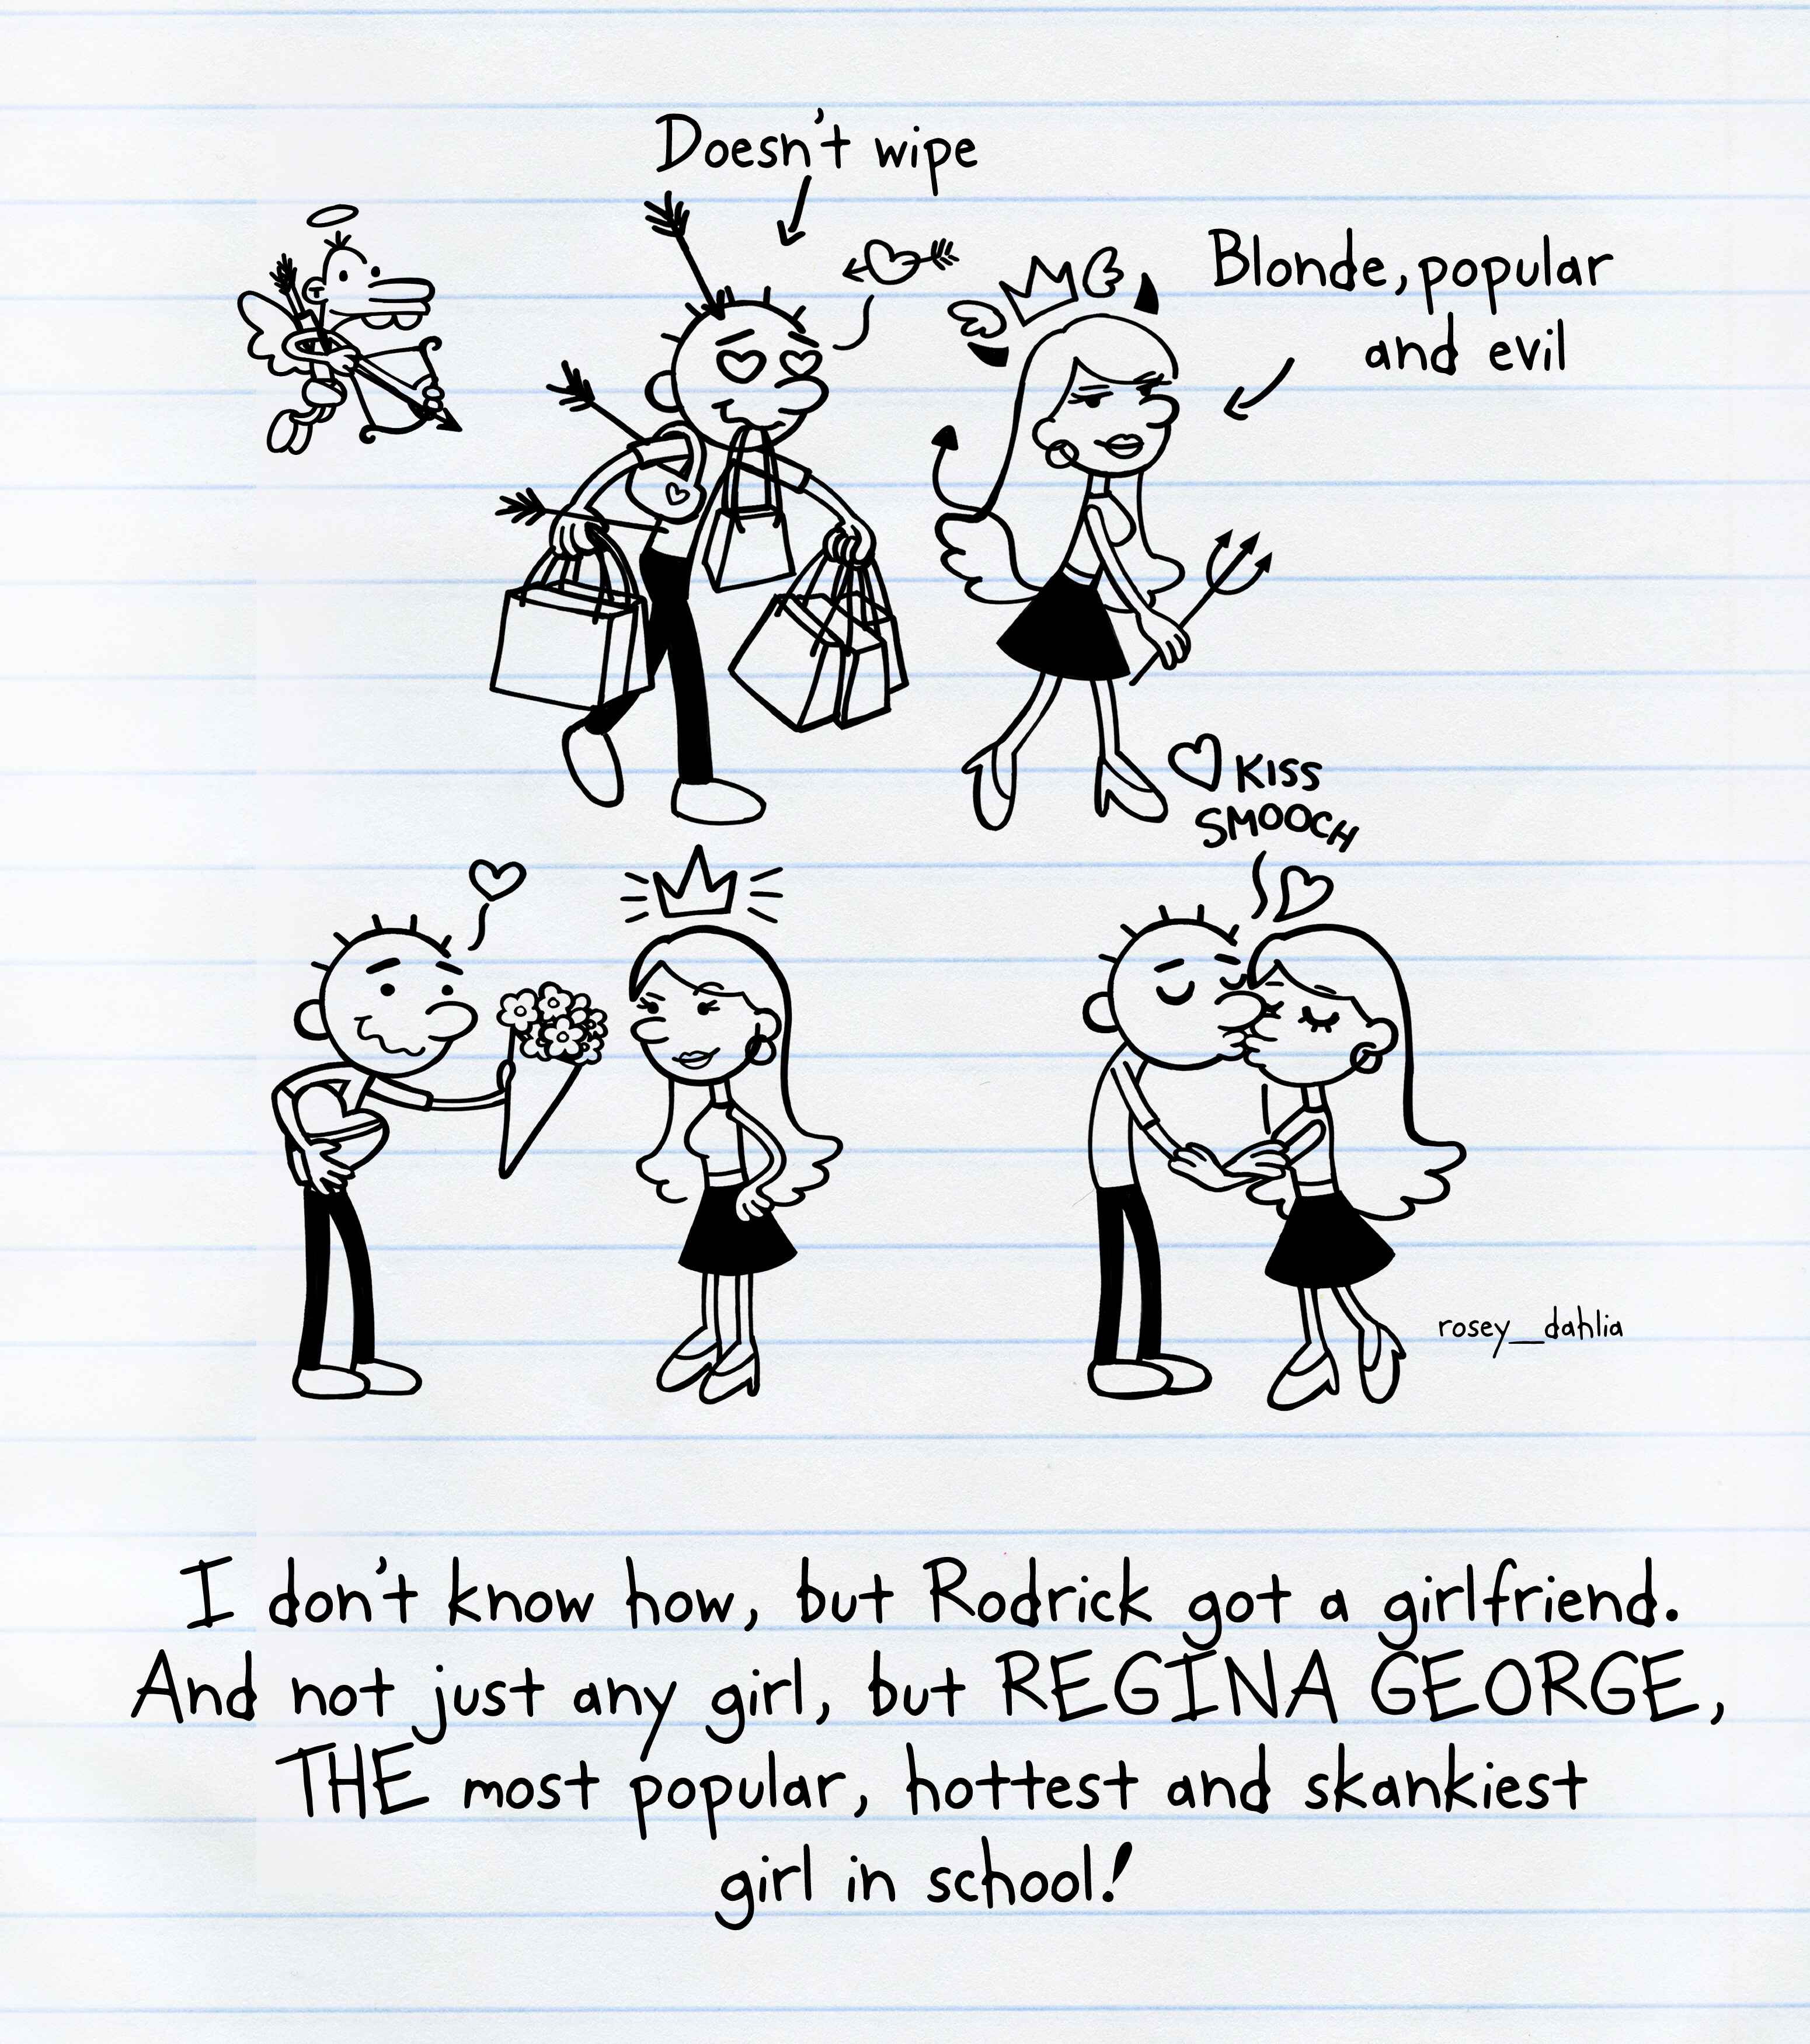 Doesn't wipe
Blonde, popular
and evil
KISS
SMOOCH
rosey__dahlia
I don't know how, but Rodrick got a girlfriend.
And not just any girl, but REGINA GEORGE,
THE most popular, hottest and skankiest
girl in school!